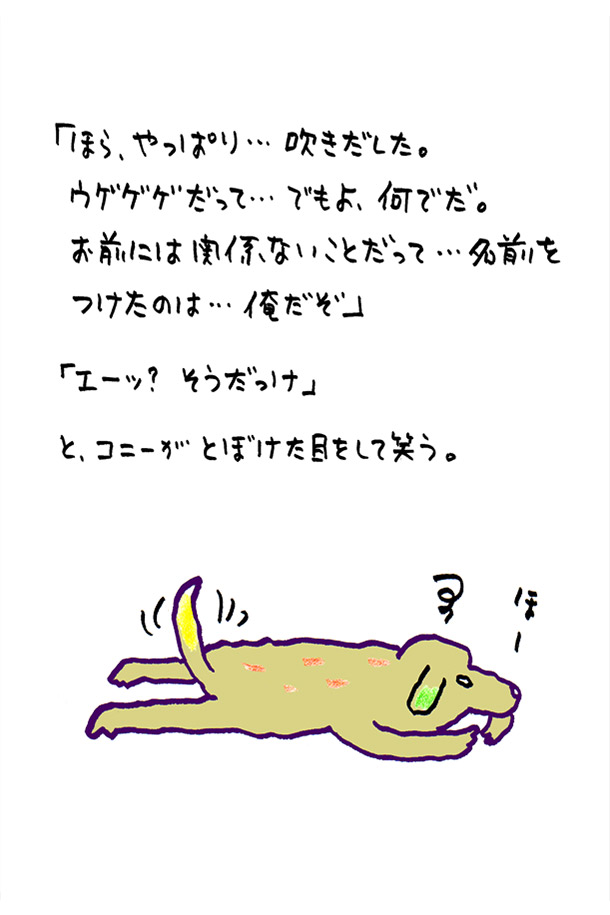 「ほら、やっぱり… 吹きだした。
ウゲゲゲだって… でもよ、何でだ。
お前には関係ないことだって… 名前を
つけたのは… 俺だぞ」
「エーッ? そうだっけ」
と、コニーが とぼけた目をして笑う。
ほー